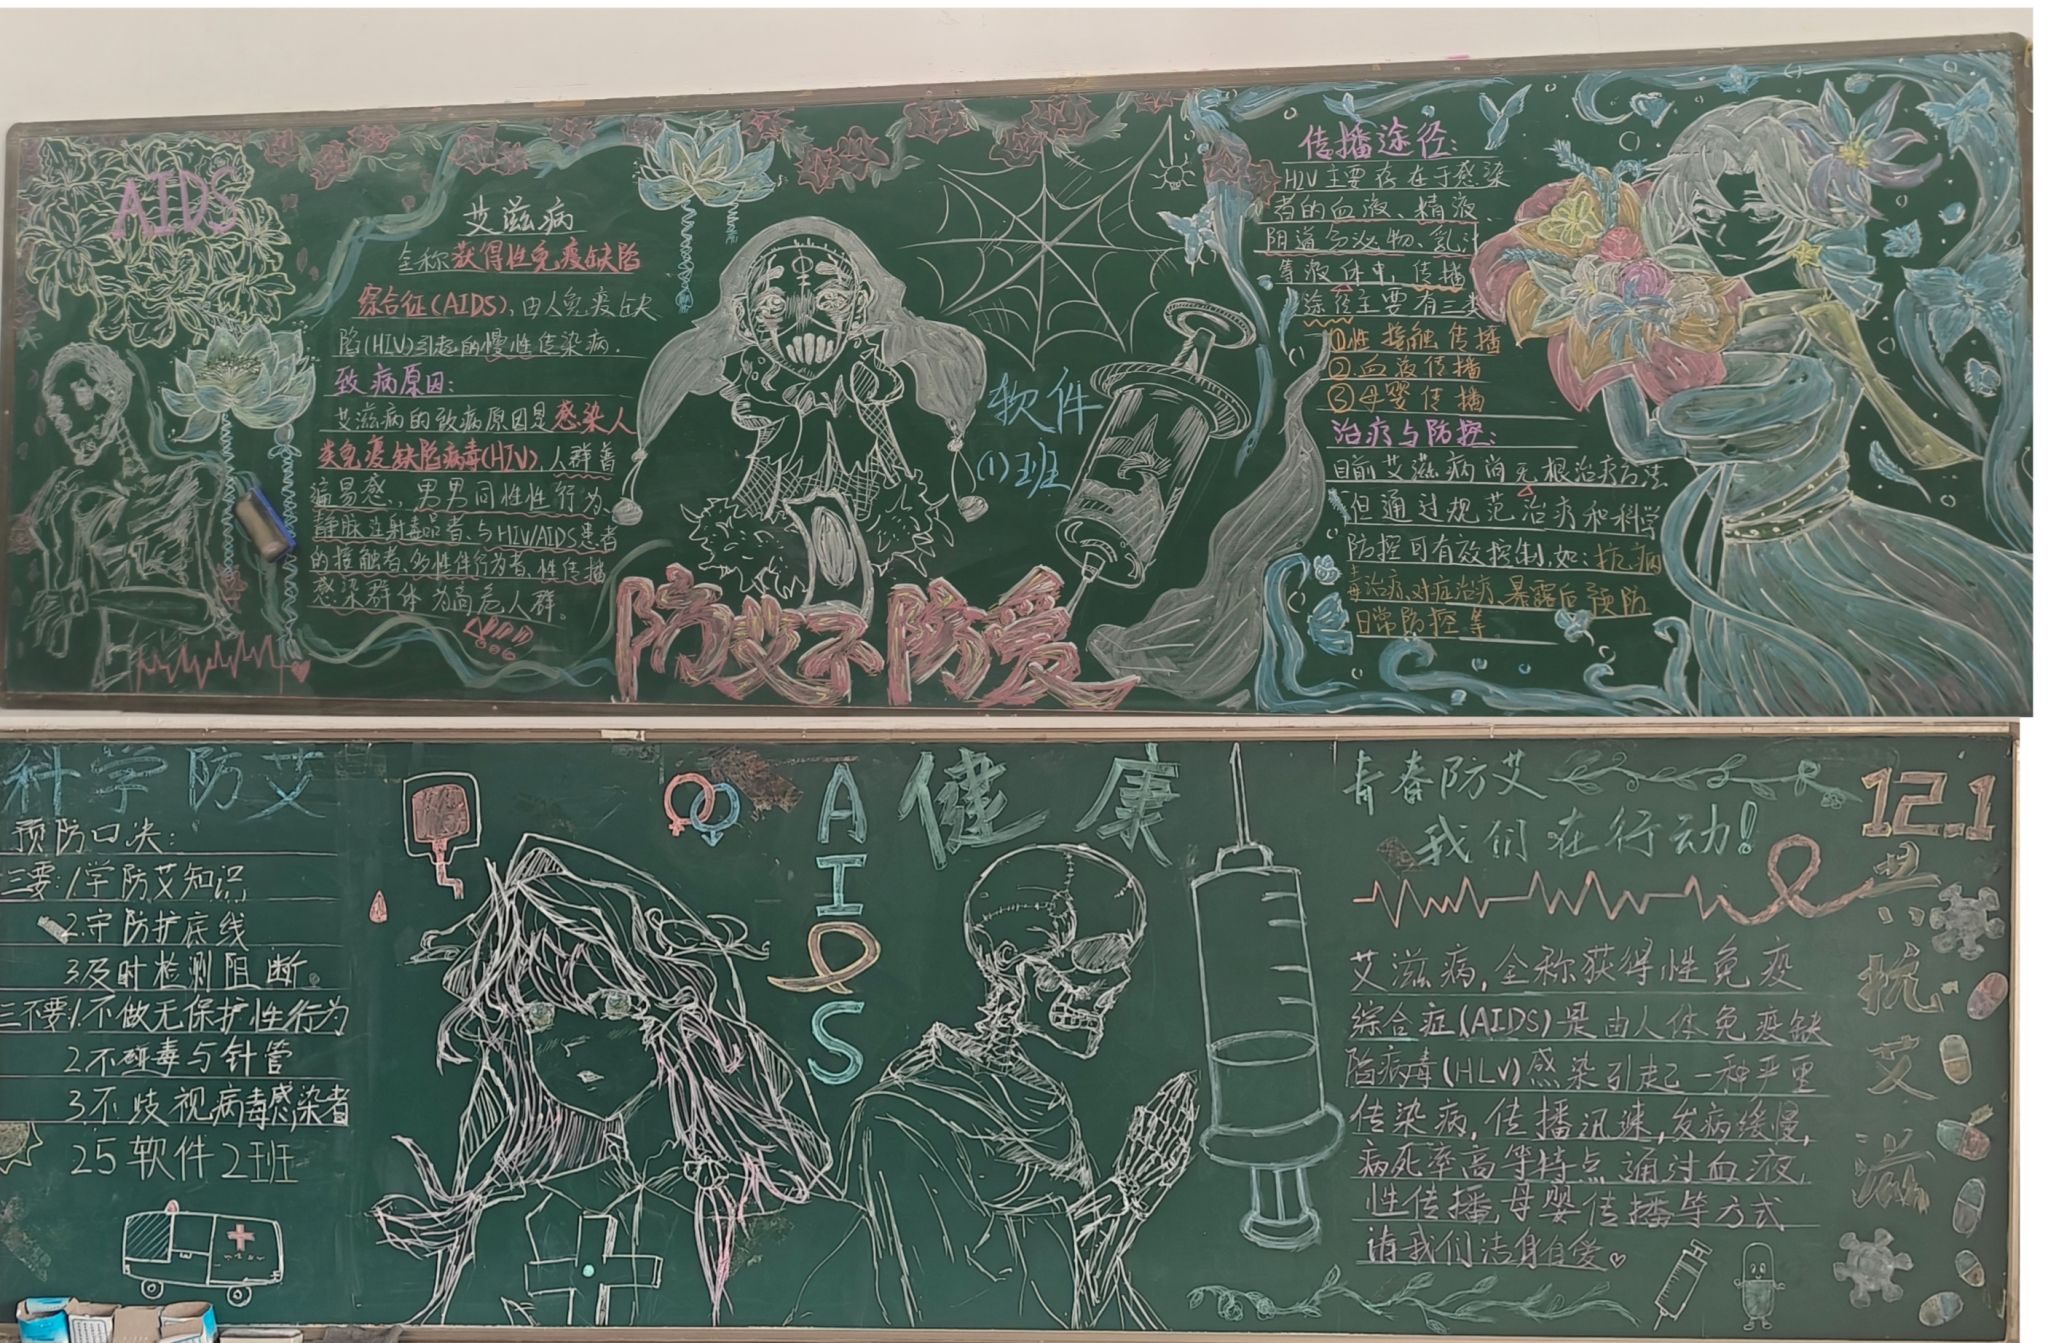 AIDS
艾滋病
全称获得性免疫缺陷
综合征(AIDS),由人免疫缺
陷(HIV)引起的慢性传染病.
致病原因:
艾滋病的致病原因是感染人
类免疫缺陷病毒(HIV),人群普
遍易感,男男同性性行为、
静脉注射毒品者、与HIV/AIDS患者
的接触者、多性伴行为者、性传播
感染群体为高危人群。
软件
(1)班
防艾不防爱
传播途径:
HIV主要存在于感染
者的血液、精液、
阴道分泌物、乳汁
等液体中,传播
途径主要有三类
①性接触传播
②血液传播
③母婴传播
治疗与防控:
目前艾滋病尚无根治疗方法
但通过规范治疗和科学
防控可有效控制,如:抗病
毒治疗、对症治疗、暴露后预防
日常防控等
科学防艾
预防口决:
三要:1学防艾知识
2.守防护底线
3及时检测阻断。
三不要1.不做无保护性行为
2不碰毒与针管
3不歧视病毒感染者
25软件2班
AIDS
健康
青春防艾
我们在行动!
12.1
艾滋病,全称获得性免疫
综合症(AIDS)是由人体免疫缺
陷病毒(HLV)感染引起一种严重
传染病,传播汛速,发病缓慢,
病死率高等特点通过血液,
性传播,母婴传播等方式
请我们洁身自爱
共抗艾滋